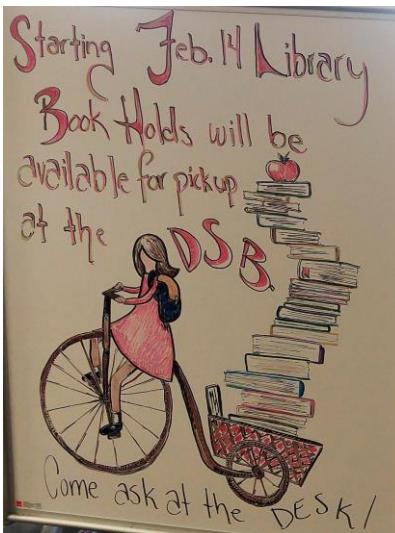 Starting Feb. 14 Library
Book Holds will be
available for pickup
at the DSB.
Come ask at the DESK!